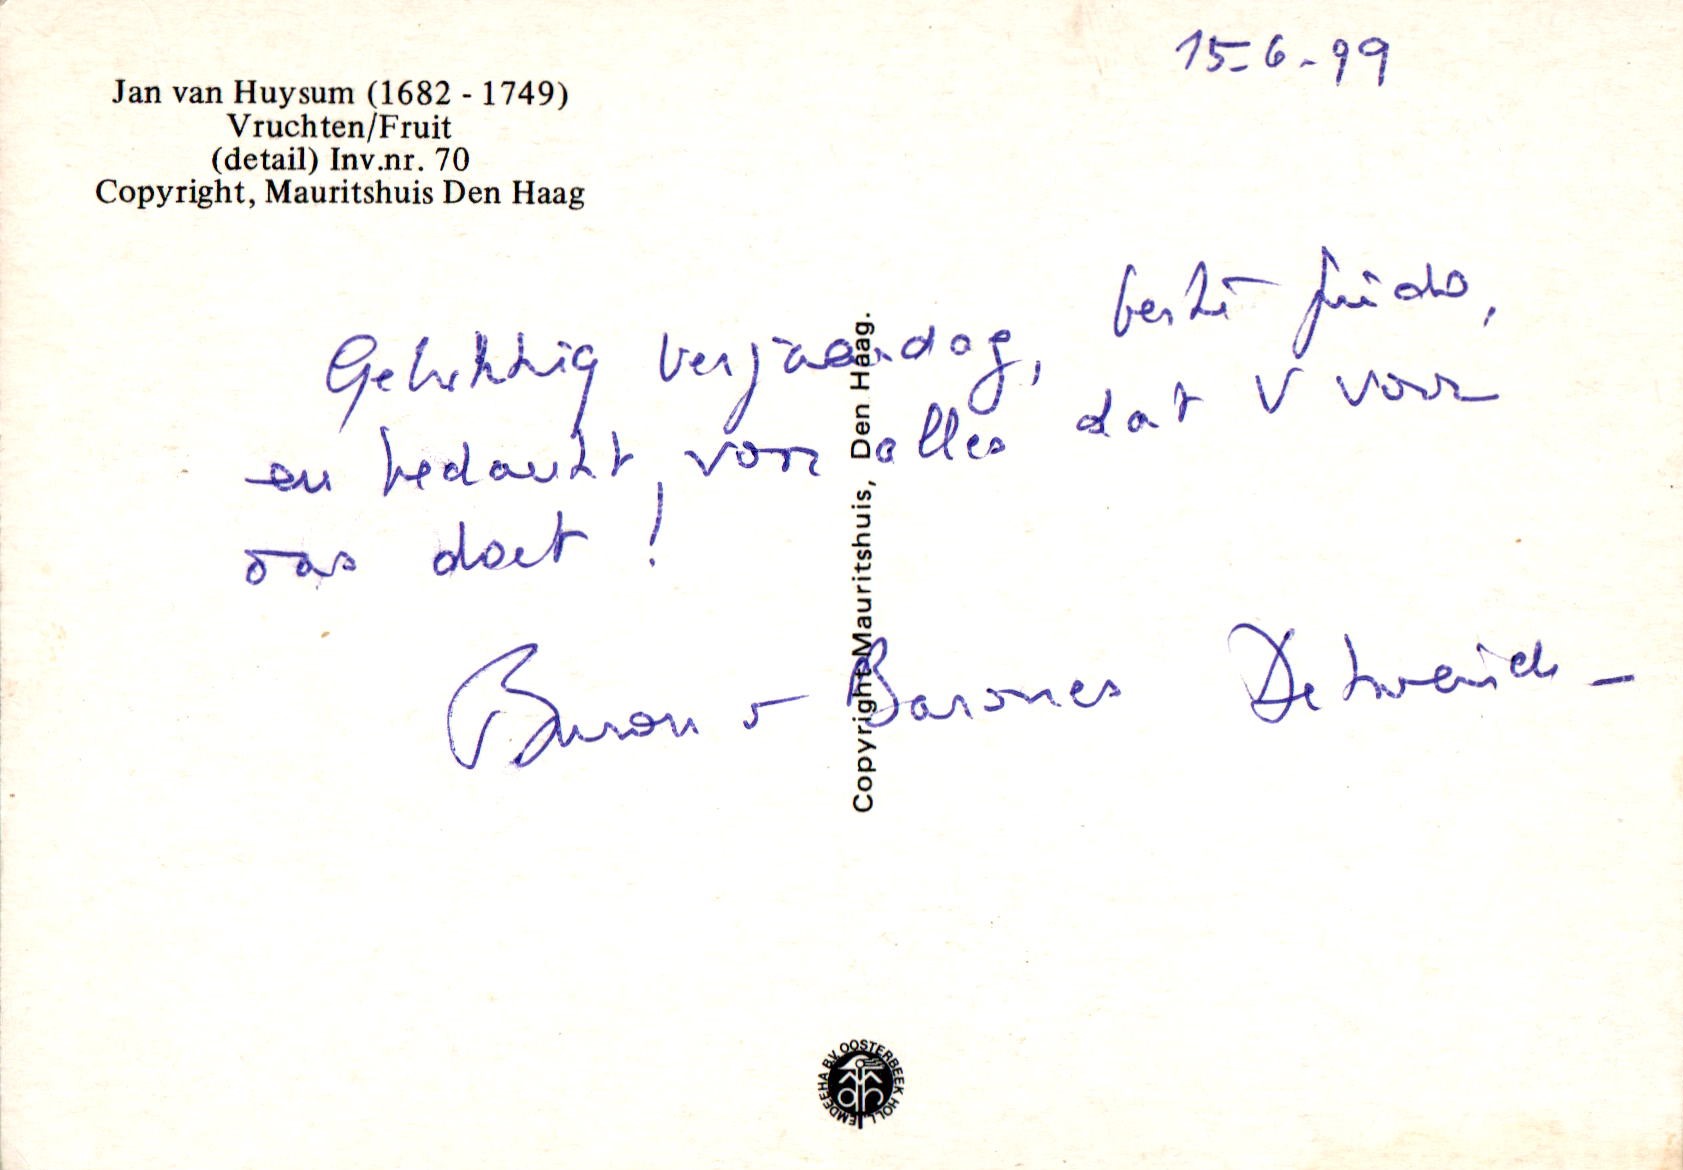 15-6-99
Jan van Huysum (1682 - 1749)
Vruchten/Fruit
(detail) Inv.nr. 70
Copyright, Mauritshuis Den Haag
Gelukkig verjaardag, beste
en bedankt, voor alles dat U voor
ons doet!
Baron & Barones
Copyright Mauritshuis, Den Haag.
EMDEEHA BV OOSTERBEEK HOLL.